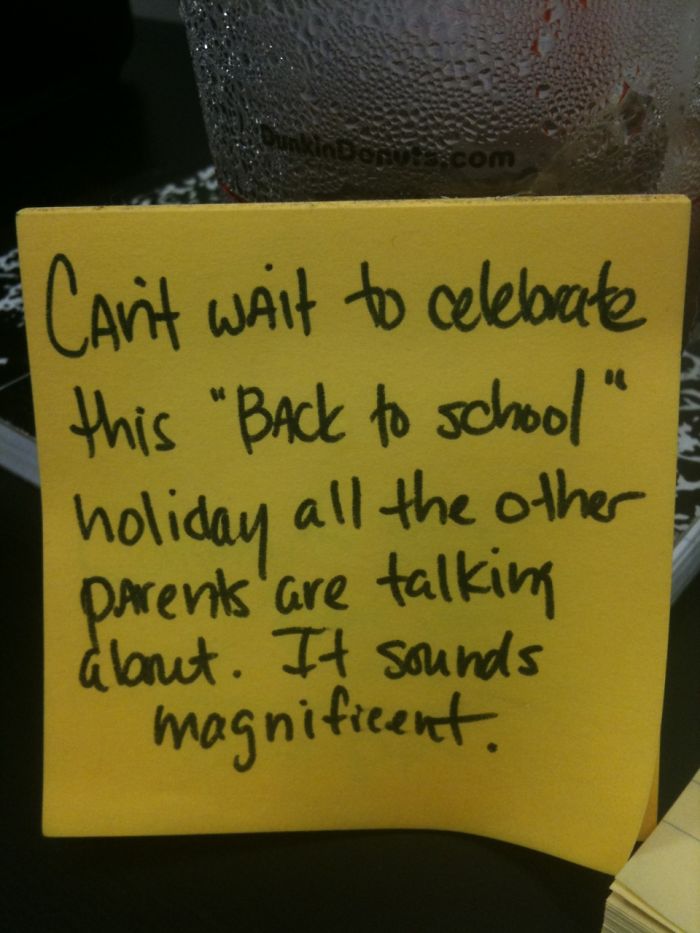 DunkinDonuts.com
CAn't wAit to celebrate
this "BAck to school"
holiday all the other
pArents are talking
about. It sounds
magnificent.